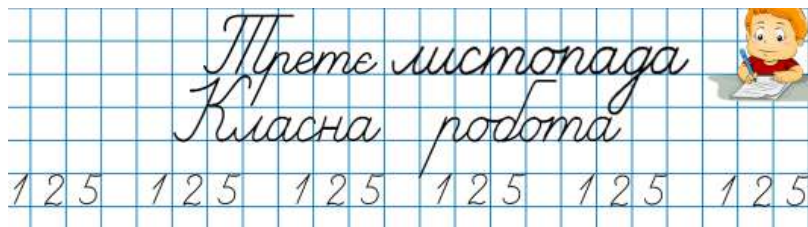 Третє листопада
Класна робота
1 2 5 1 2 5 1 2 5 1 2 5 1 2 5 1 2 5